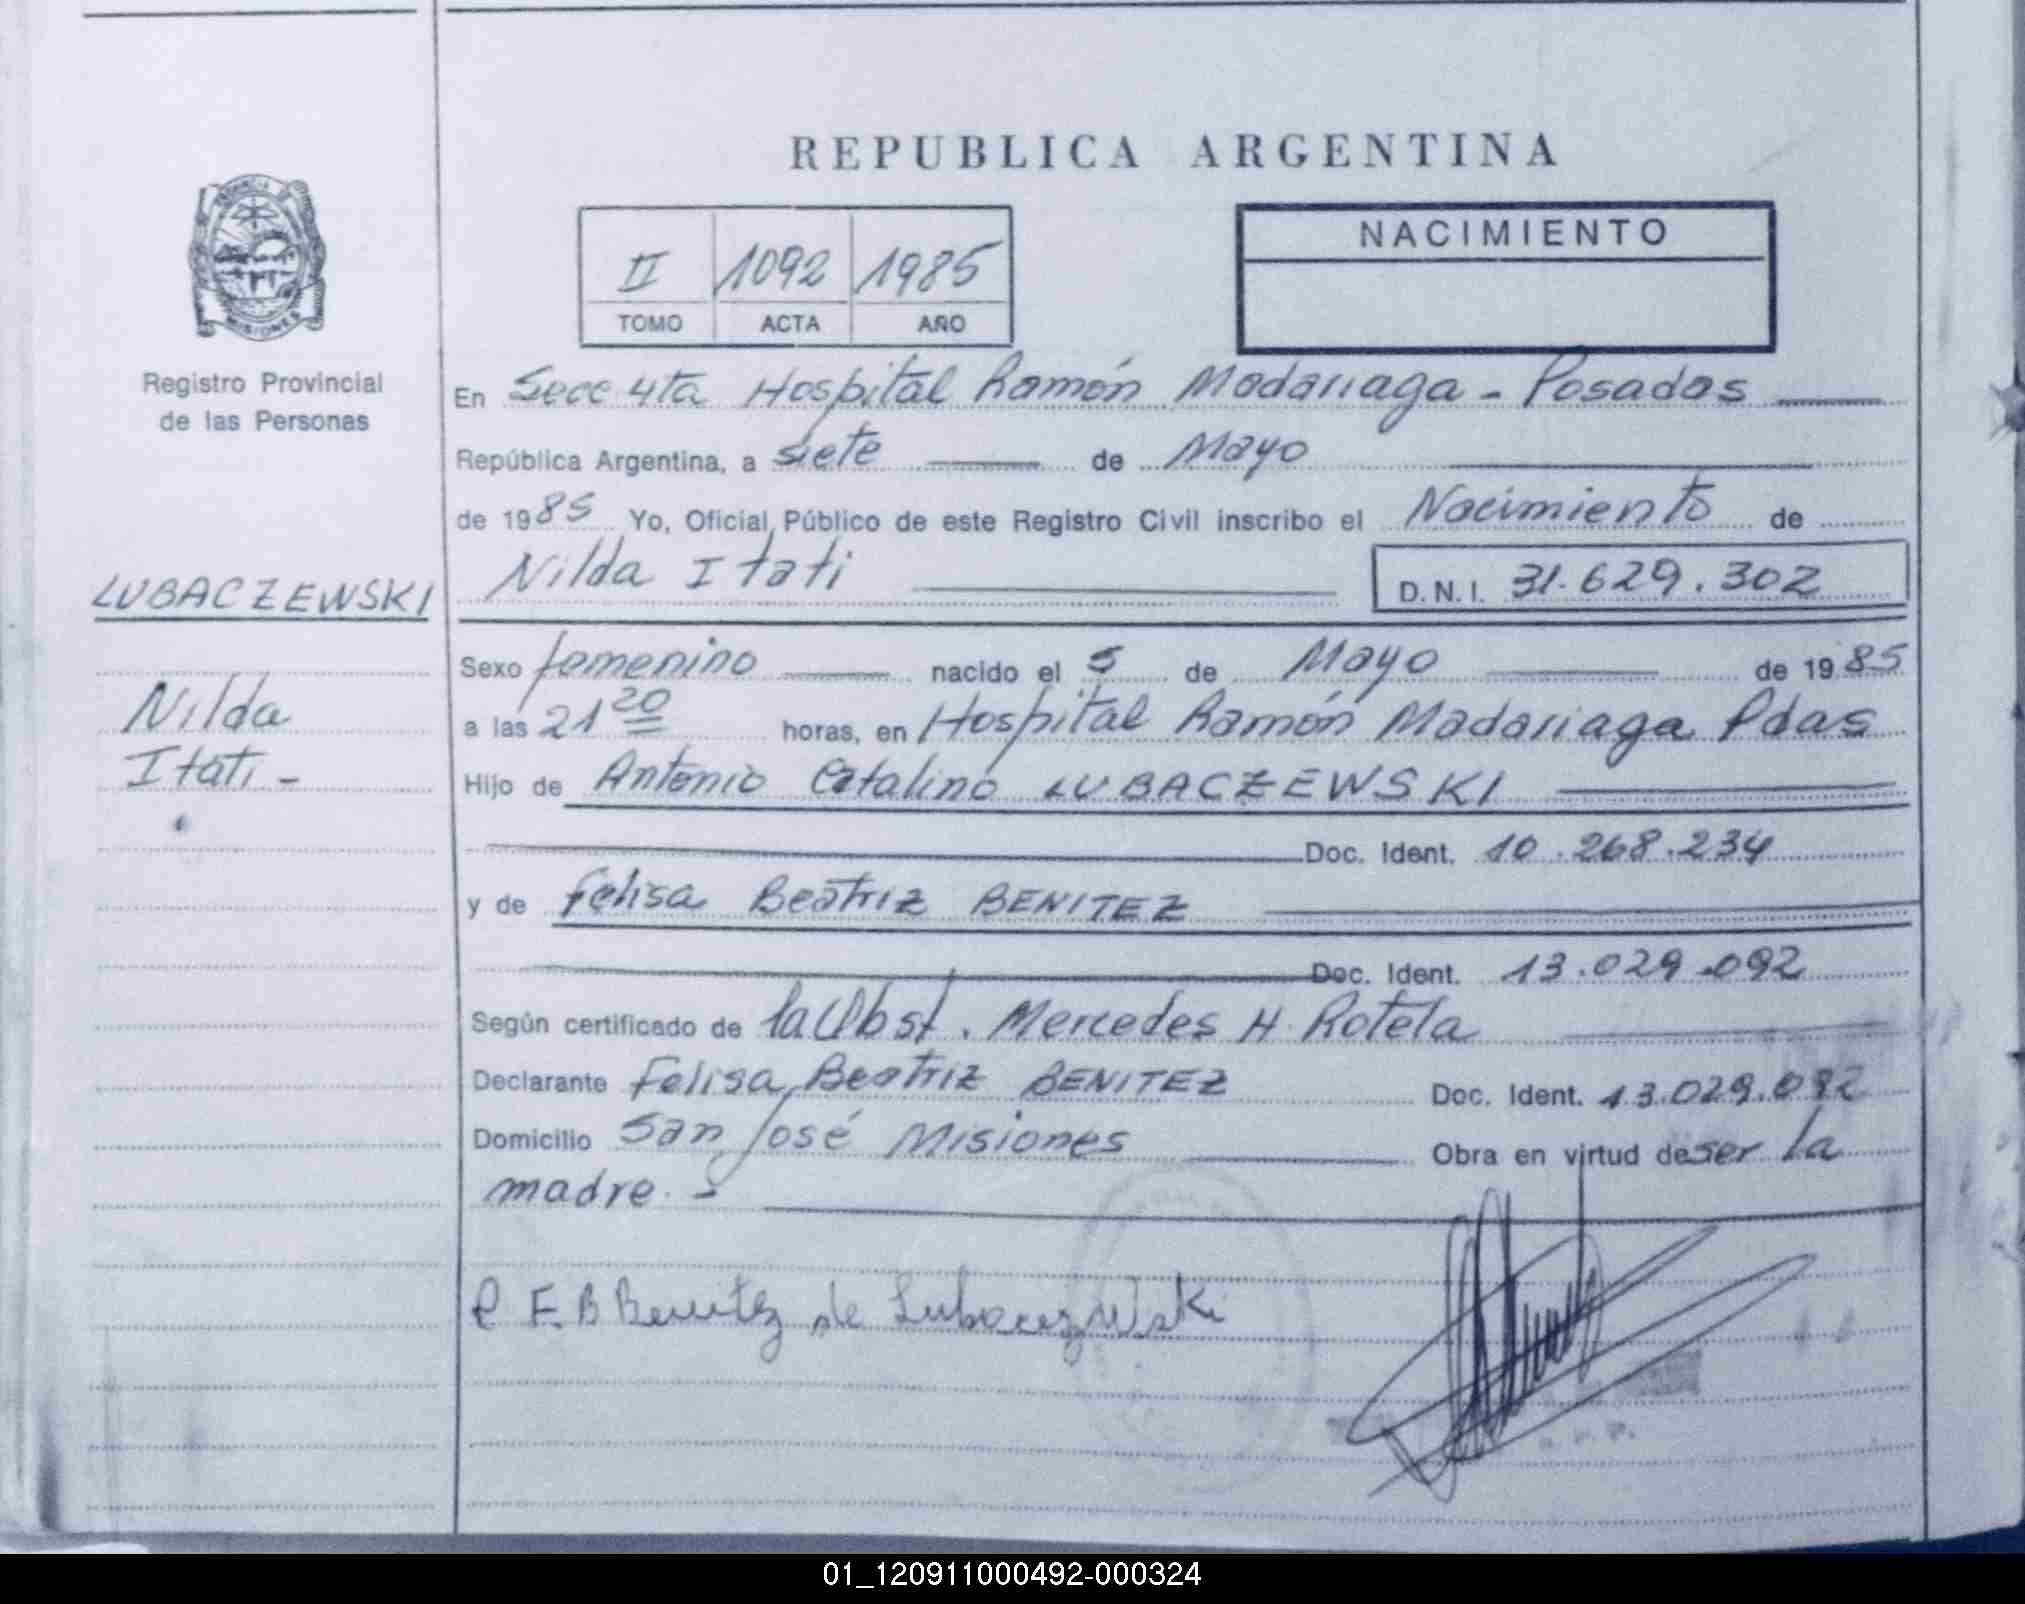 REPUBLICA ARGENTINA
II 1092 1985
TOMO ACTA AÑO
NACIMIENTO
MISIONES
Registro Provincial
de las Personas
LUBACZEWSKI
Nilda
Itati -
En Secc 4ta Hospital Ramón Madariaga - Posadas
República Argentina, a siete de Mayo
de 1985 Yo, Oficial Público de este Registro Civil inscribo el Nacimiento de
Nilda Itati D.N.I. 31.629.302
Sexo femenino nacido el 5 de Mayo de 1985
a las 21 20 horas, en Hospital Ramón Madariaga Pdas
Hijo de Antonio Catalino LUBACZEWSKI
Doc. Ident. 10.268.234
y de Felisa Beatriz BENITEZ
Doc. Ident. 13.029.092
Según certificado de la Obst. Mercedes H. Rotela
Declarante Felisa Beatriz BENITEZ Doc. Ident. 13.029.092
Domicilio San José Misiones Obra en virtud de ser la
madre. -
F.B Benitez de Lubaczewski
01_120911000492-000324